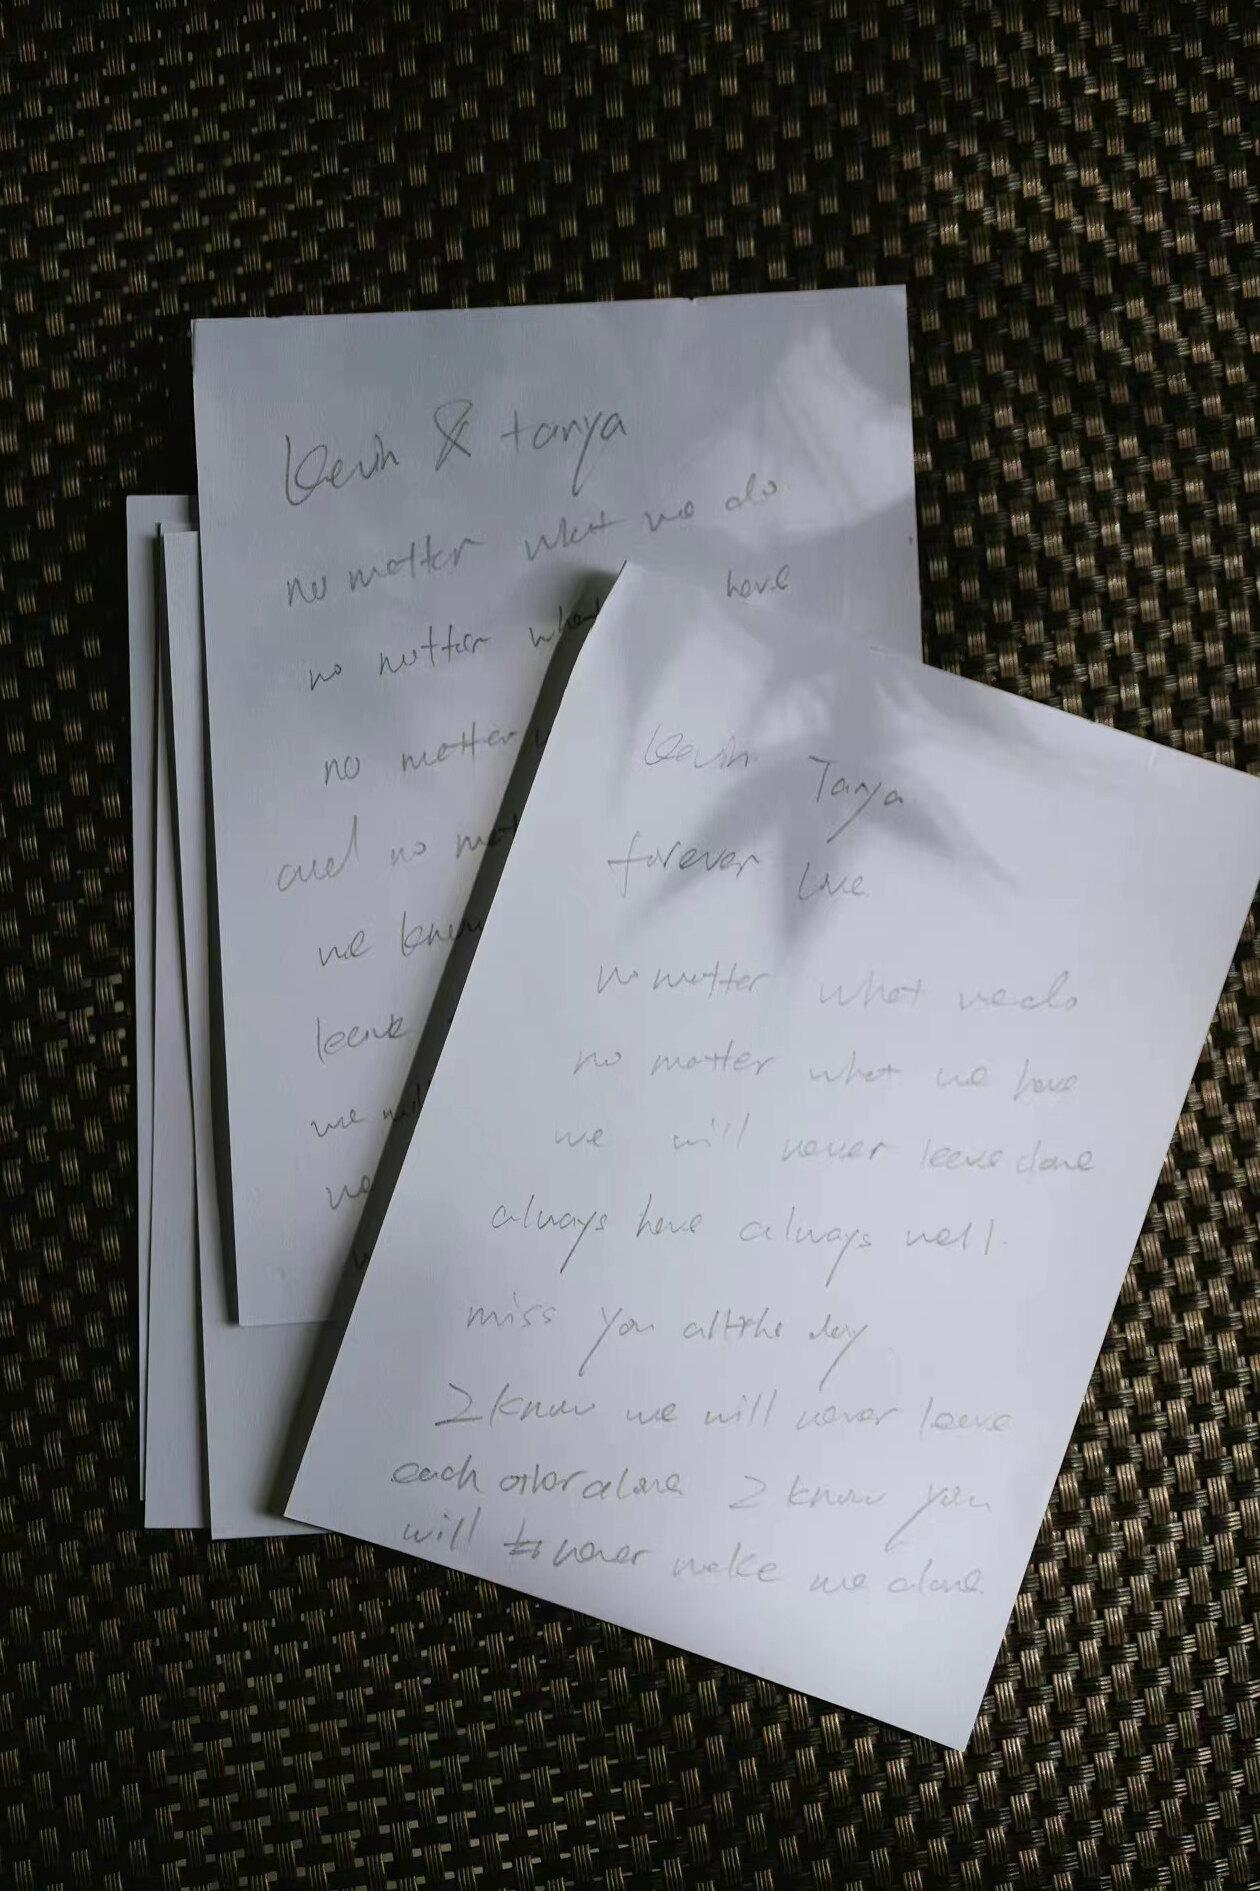 Kevin & tanya
no matter what we do
no matter what have
no matter
and no
we know
leave
we will
Kevin Tanya
forever Love
no matter what we do
no matter what we have
we will never leave alone
always have always well.
miss you all the day
I know we will never leave
each other alone I know you
will never make me alone.